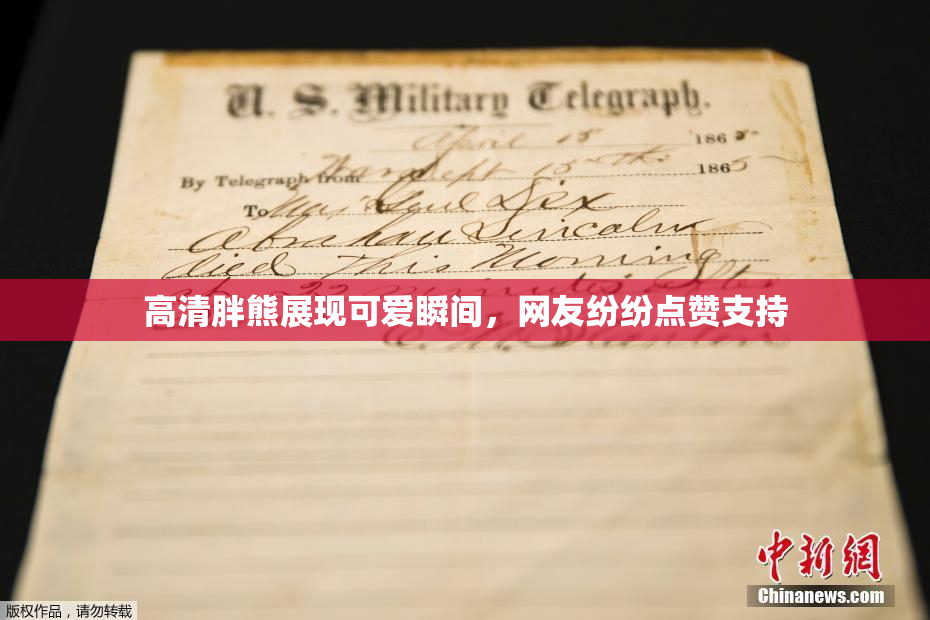 U. S. Military Telegraph.
April 15 1865
By Telegraph from War Dept 15th 1865
To Maj Genl Dix
Abraham Lincoln
died This Morning
at 22 minutes after
高清胖熊展现可爱瞬间，网友纷纷点赞支持
E. M. Stanton
中新网
Chinanews.com
版权作品，请勿转载